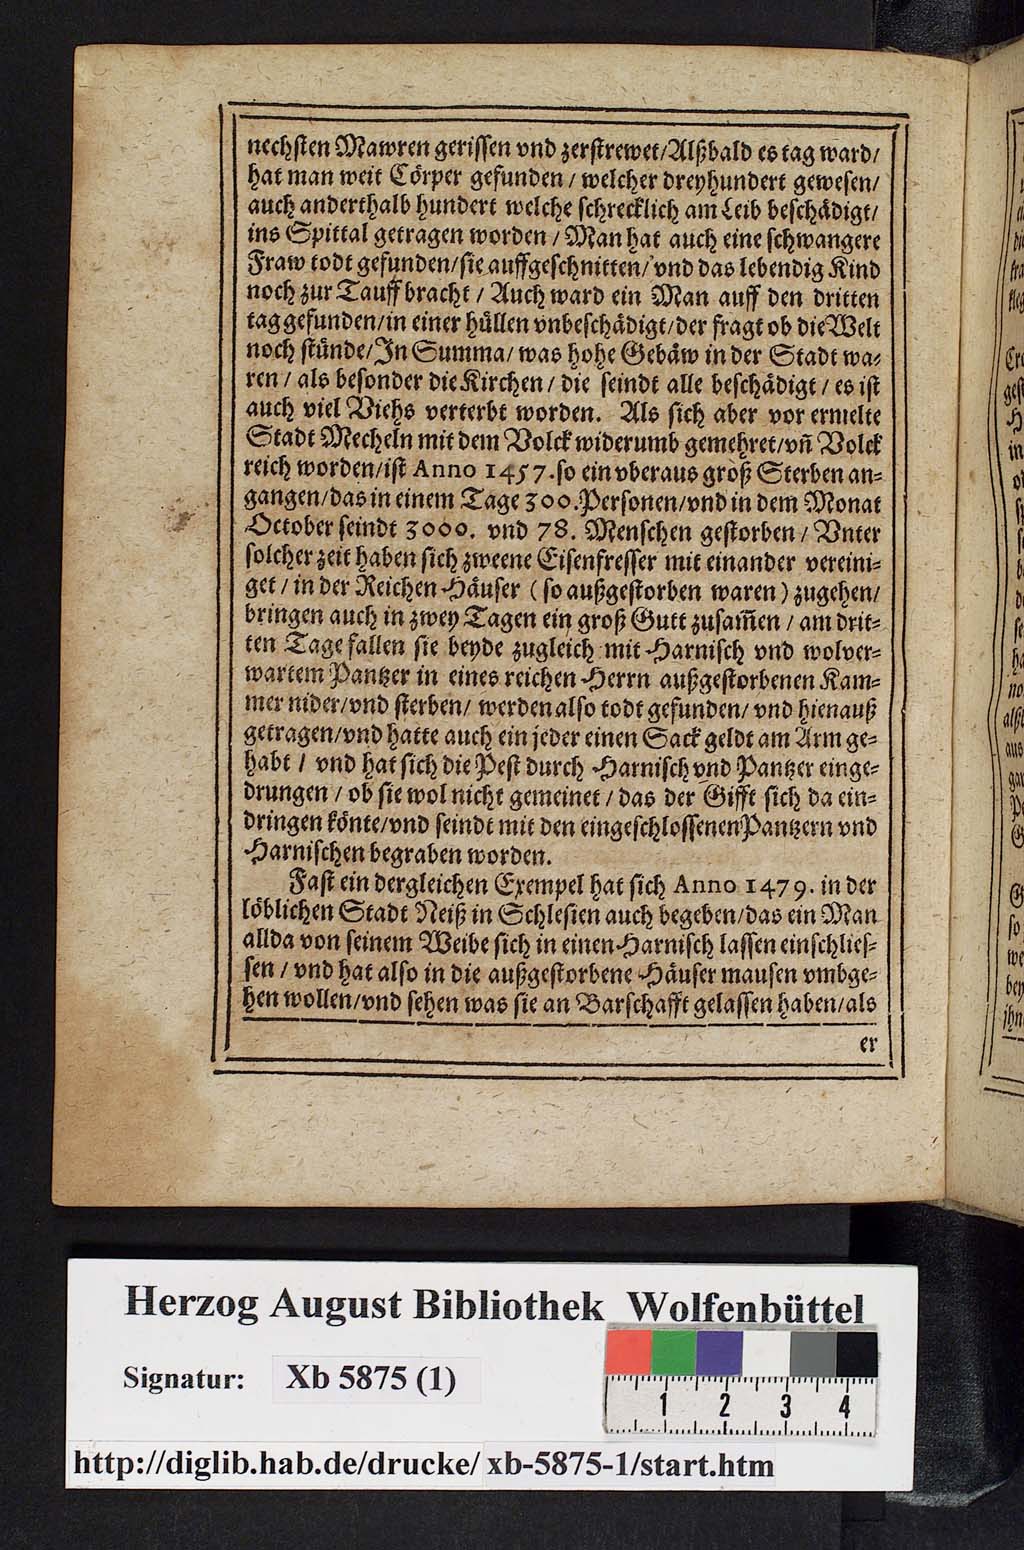 nechsten Mawren gerissen vnd zerstrewet/Alßbald es tag ward/
hat man weit Cörper gefunden / welcher dreyhundert gewesen/
auch anderthalb hundert welche schrecklich am Leib beschädigt/
ins Spittal getragen worden / Man hat auch eine schwangere
Fraw todt gefunden/sie auffgeschnitten/ vnd das lebendig Kind
noch zur Tauff bracht / Auch ward ein Man auff den dritten
tag gefunden/in einer hüllen vnbeschädigt/der fragt ob die Welt
noch stünde/In Summa/ was hohe Gebäw in der Stadt wa-
ren / als besonder die Kirchen / die seindt alle beschädigt / es ist
auch viel Viehs verterbt worden. Als sich aber vor ermelte
Stadt Mecheln mit dem Volck widerumb gemehret/vñ Volck
reich worden/ist Anno 1457.so ein vberaus groß Sterben an-
gangen/das in einem Tage 300.Personen/vnd in dem Monat
October seindt 3000. vnd 78. Menschen gestorben / Vnter
solcher zeit haben sich zweene Eisenfresser mit einander vereini-
get / in der Reichen Häuser ( so außgestorben waren ) zugehen/
bringen auch in zwey Tagen ein groß Gutt zusam̃en / am drit-
ten Tage fallen sie beyde zugleich mit Harnisch vnd wolver-
wartem Pantzer in eines reichen Herrn außgestorbenen Kam-
mer nider/vnd sterben/ werden also todt gefunden/ vnd hienauß
getragen/vnd hatte auch ein jeder einen Sack geldt am Arm ge-
habt / vnd hat sich die Pest durch Harnisch vnd Pantzer einge-
drungen / ob sie wol nicht gemeinet / das der Gifft sich da ein-
dringen könte/vnd seindt mit den eingeschlossenen Pantzern vnd
Harnischen begraben worden.
Fast ein dergleichen Exempel hat sich Anno 1479. in der
löblichen Stadt Neiß in Schlesien auch begeben/das ein Man
allda von seinem Weibe sich in einen Harnisch lassen einschlies-
sen / vnd hat also in die außgestorbene Häuser mausen vmbge-
hen wollen/vnd sehen was sie an Barschafft gelassen haben/als
er
Herzog August Bibliothek Wolfenbüttel
Signatur: Xb 5875 (1)
1 2 3 4
http://diglib.hab.de/drucke/ xb-5875-1/start.htm